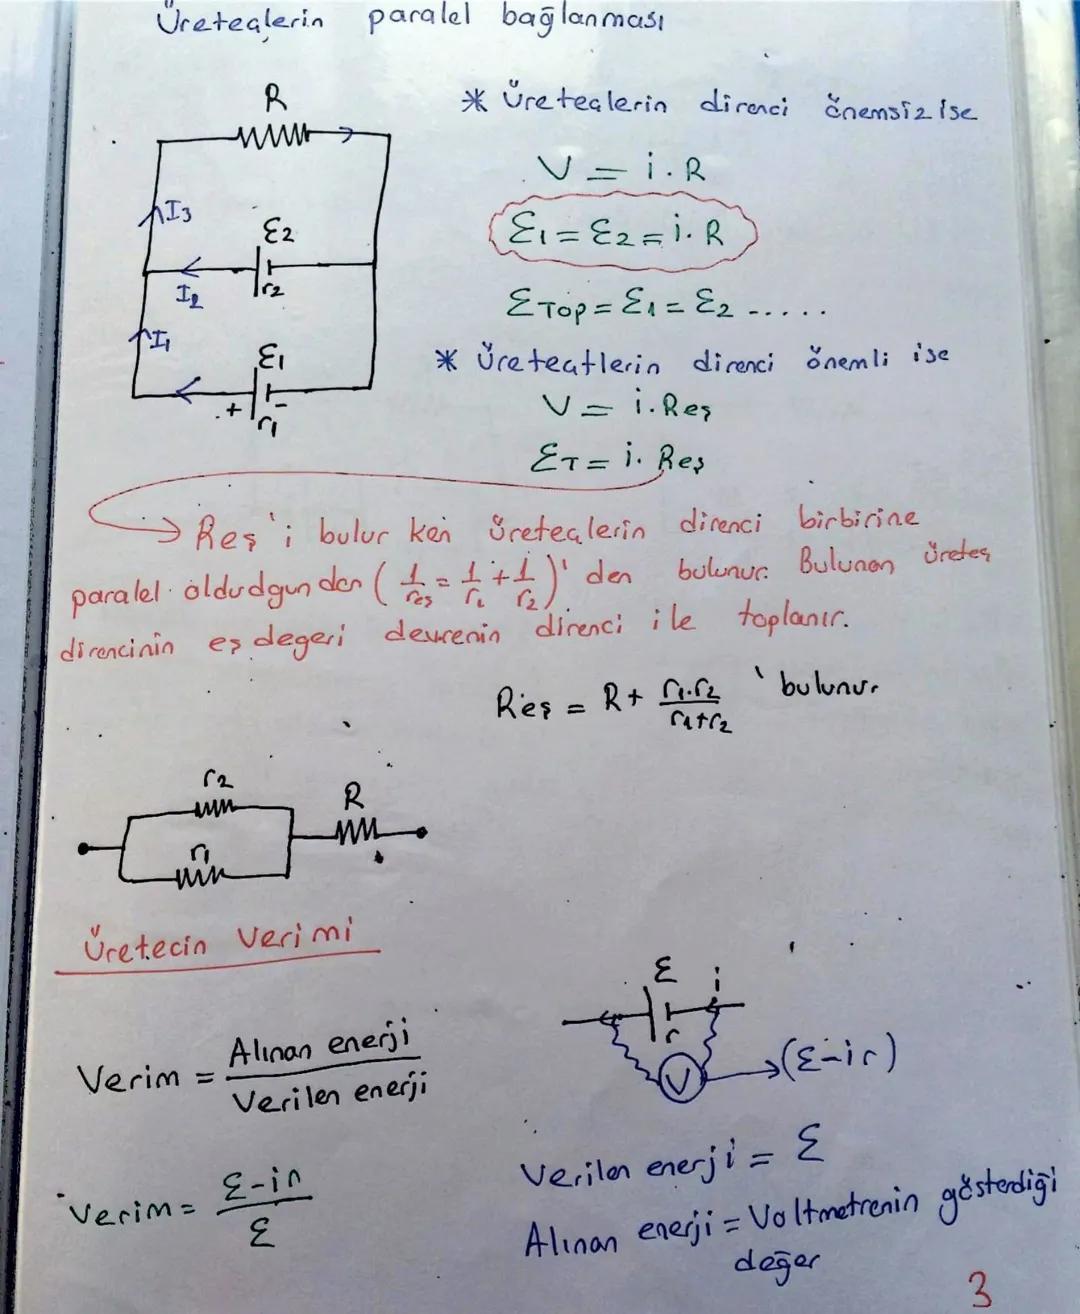 Üreteçlerin paralel bağlanması
R
I3
ε2
I2
r2
I1
ε1
+ -
r1
* Üreteçlerin direnci önemsiz ise
V = i.R
ε1 = ε2 = i.R
εTop = ε1 = ε2 .....
* Üreteçtlerin direnci önemli ise
V = i.Reş
εT = i.Reş
→ Reş'i bulur ken üreteçlerin direnci birbirine
paralel oldudgundan (1/reş = 1/r1 + 1/r2)'den bulunur. Bulunan üreteç
direncinin eş degeri devrenin direnci ile toplanır.
Reş = R + r1.r2/r1+r2 'bulunur
r2
R
r1
Üretecin Verimi
Verim = Alınan enerji / Verilen enerji
Verim = ε-ir / ε
ε i
r
V → (ε-ir)
Verilen enerji = ε
Alınan enerji = Voltmetrenin gösterdiği
değer
3